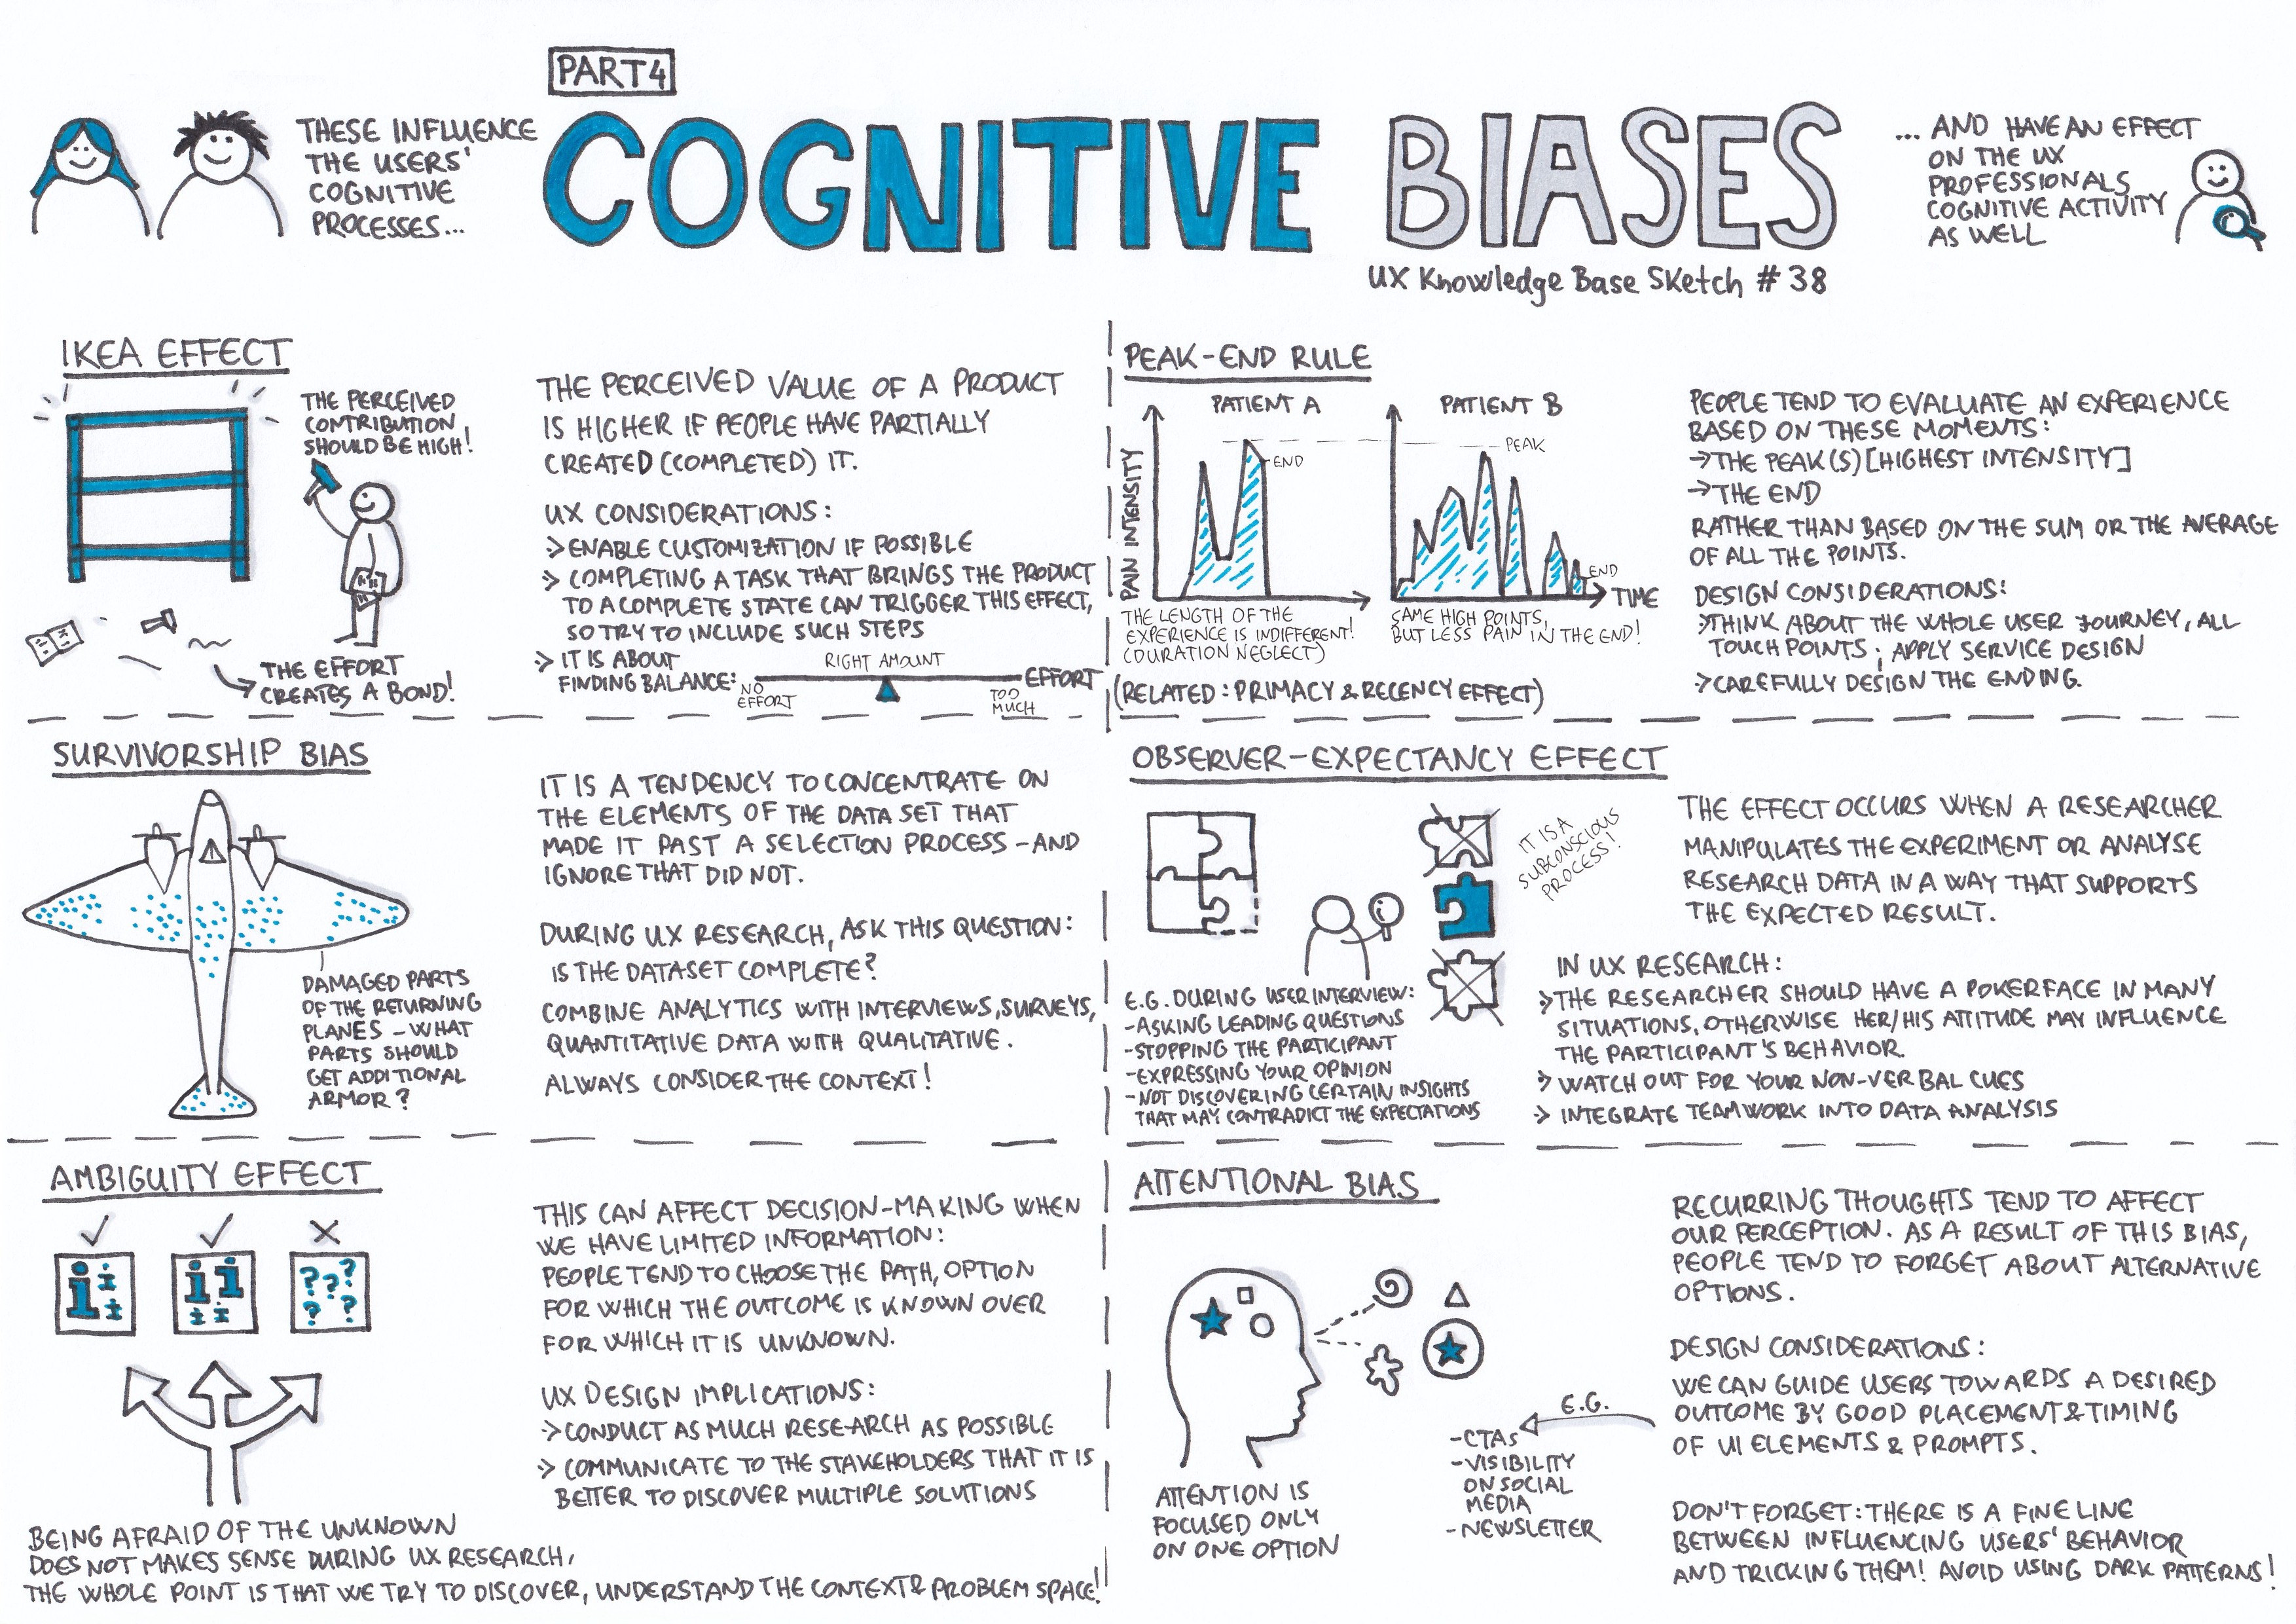 PART4
COGNITIVE BIASES
UX Knowledge Base Sketch #38
THESE INFLUENCE
THE USERS'
COGNITIVE
PROCESSES...
... AND HAVE AN EFFECT
ON THE UX
PROFESSIONALS
COGNITIVE ACTIVITY
AS WELL
IKEA EFFECT
THE PERCEIVED
CONTRIBUTION
SHOULD BE HIGH!
THE EFFORT
CREATES A BOND!
THE PERCEIVED VALUE OF A PRODUCT
IS HIGHER IF PEOPLE HAVE PARTIALLY
CREATED (COMPLETED) IT.
UX CONSIDERATIONS:
ENABLE CUSTOMIZATION IF POSSIBLE
COMPLETING A TASK THAT BRINGS THE PRODUCT
TO A COMPLETE STATE CAN TRIGGER THIS EFFECT,
SO TRY TO INCLUDE SUCH STEPS
IT IS ABOUT
FINDING BALANCE:
RIGHT AMOUNT
EFFORT
NO
EFFORT
TOO
MUCH
PEAK-END RULE
PATIENT A
PATIENT B
PAIN INTENSITY
END
PEAK
END
TIME
THE LENGTH OF THE
EXPERIENCE IS INDIFFERENT!
(DURATION NEGLECT)
SAME HIGH POINTS,
BUT LESS PAIN IN THE END!
(RELATED: PRIMACY & RECENCY EFFECT)
PEOPLE TEND TO EVALUATE AN EXPERIENCE
BASED ON THESE MOMENTS:
→THE PEAK(S) [HIGHEST INTENSITY]
→THE END
RATHER THAN BASED ON THE SUM OR THE AVERAGE
OF ALL THE POINTS.
DESIGN CONSIDERATIONS:
THINK ABOUT THE WHOLE USER JOURNEY, ALL
TOUCH POINTS; APPLY SERVICE DESIGN
CAREFULLY DESIGN THE ENDING.
SURVIVORSHIP BIAS
DAMAGED PARTS
OF THE RETURNING
PLANES - WHAT
PARTS SHOULD
GET ADDITIONAL
ARMOR?
IT IS A TENDENCY TO CONCENTRATE ON
THE ELEMENTS OF THE DATA SET THAT
MADE IT PAST A SELECTION PROCESS - AND
IGNORE THAT DID NOT.
DURING UX RESEARCH, ASK THIS QUESTION:
IS THE DATASET COMPLETE?
COMBINE ANALYTICS WITH INTERVIEWS, SURVEYS,
QUANTITATIVE DATA WITH QUALITATIVE.
ALWAYS CONSIDER THE CONTEXT!
OBSERVER-EXPECTANCY EFFECT
IT IS A
SUBCONSCIOUS
PROCESS!
E.G. DURING USER INTERVIEW:
-ASKING LEADING QUESTIONS
-STOPPING THE PARTICIPANT
-EXPRESSING YOUR OPINION
-NOT DISCOVERING CERTAIN INSIGHTS
THAT MAY CONTRADICT THE EXPECTATIONS
THE EFFECT OCCURS WHEN A RESEARCHER
MANIPULATES THE EXPERIMENT OR ANALYSE
RESEARCH DATA IN A WAY THAT SUPPORTS
THE EXPECTED RESULT.
IN UX RESEARCH:
THE RESEARCHER SHOULD HAVE A POKERFACE IN MANY
SITUATIONS, OTHERWISE HER/HIS ATTITUDE MAY INFLUENCE
THE PARTICIPANT'S BEHAVIOR.
WATCH OUT FOR YOUR NON-VERBAL CUES
INTEGRATE TEAMWORK INTO DATA ANALYSIS
AMBIGUITY EFFECT
i i i
i i i i
? ? ? ? ?
THIS CAN AFFECT DECISION-MAKING WHEN
WE HAVE LIMITED INFORMATION:
PEOPLE TEND TO CHOOSE THE PATH, OPTION
FOR WHICH THE OUTCOME IS KNOWN OVER
FOR WHICH IT IS UNKNOWN.
UX DESIGN IMPLICATIONS:
CONDUCT AS MUCH RESEARCH AS POSSIBLE
COMMUNICATE TO THE STAKEHOLDERS THAT IT IS
BETTER TO DISCOVER MULTIPLE SOLUTIONS
BEING AFRAID OF THE UNKNOWN
DOES NOT MAKES SENSE DURING UX RESEARCH,
THE WHOLE POINT IS THAT WE TRY TO DISCOVER, UNDERSTAND THE CONTEXT & PROBLEM SPACE!
ATTENTIONAL BIAS
ATTENTION IS
FOCUSED ONLY
ON ONE OPTION
E.G.
-CTAs
-VISIBILITY
ON SOCIAL
MEDIA
-NEWSLETTER
RECURRING THOUGHTS TEND TO AFFECT
OUR PERCEPTION. AS A RESULT OF THIS BIAS,
PEOPLE TEND TO FORGET ABOUT ALTERNATIVE
OPTIONS.
DESIGN CONSIDERATIONS:
WE CAN GUIDE USERS TOWARDS A DESIRED
OUTCOME BY GOOD PLACEMENT & TIMING
OF UI ELEMENTS & PROMPTS.
DON'T FORGET: THERE IS A FINE LINE
BETWEEN INFLUENCING USERS' BEHAVIOR
AND TRICKING THEM! AVOID USING DARK PATTERNS!